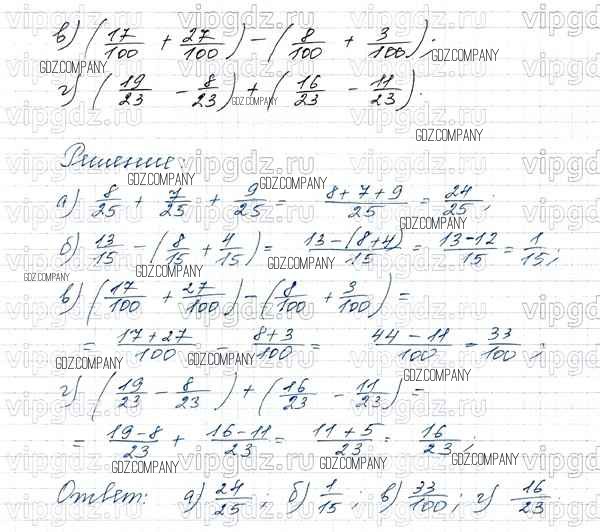 в) (17/100 + 27/100) - (8/100 + 3/100);
г) (19/23 - 8/23) + (16/23 - 11/23).
Решение:
а) 8/25 + 7/25 + 9/25 = (8+7+9)/25 = 24/25;
б) 13/15 - (8/15 + 4/15) = (13-(8+4))/15 = (13-12)/15 = 1/15;
в) (17/100 + 27/100) - (8/100 + 3/100) =
= (17+27)/100 - (8+3)/100 = (44-11)/100 = 33/100;
г) (19/23 - 8/23) + (16/23 - 11/23) =
= (19-8)/23 + (16-11)/23 = (11+5)/23 = 16/23;
Ответ: а) 24/25; б) 1/15; в) 33/100; г) 16/23.
GDZ.COMPANY
vipgdz.ru